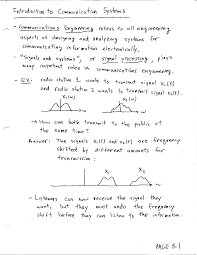 Introduction to Communication Systems
- Communications Engineering refers to all engineering
aspects of designing and analyzing systems for
communicating information electronically.
- "Signals and systems", or signal processing, plays
many important roles in communications engineering.
- EX: radio station 1 wants to transmit signal x₁(t)
and radio station 2 wants to transmit signal x₂(t).
X₁(ω) X₂(ω)
ω ω
→ How can both transmit to the public at
the same time?
Answer: The signals x₁(t) and x₂(t) are frequency
shifted by different amounts for
transmission:
X₁ X₂
ω
- Listeners can now receive the signal they
want, but they must undo the frequency
shift before they can listen to the information.
PAGE 8.1